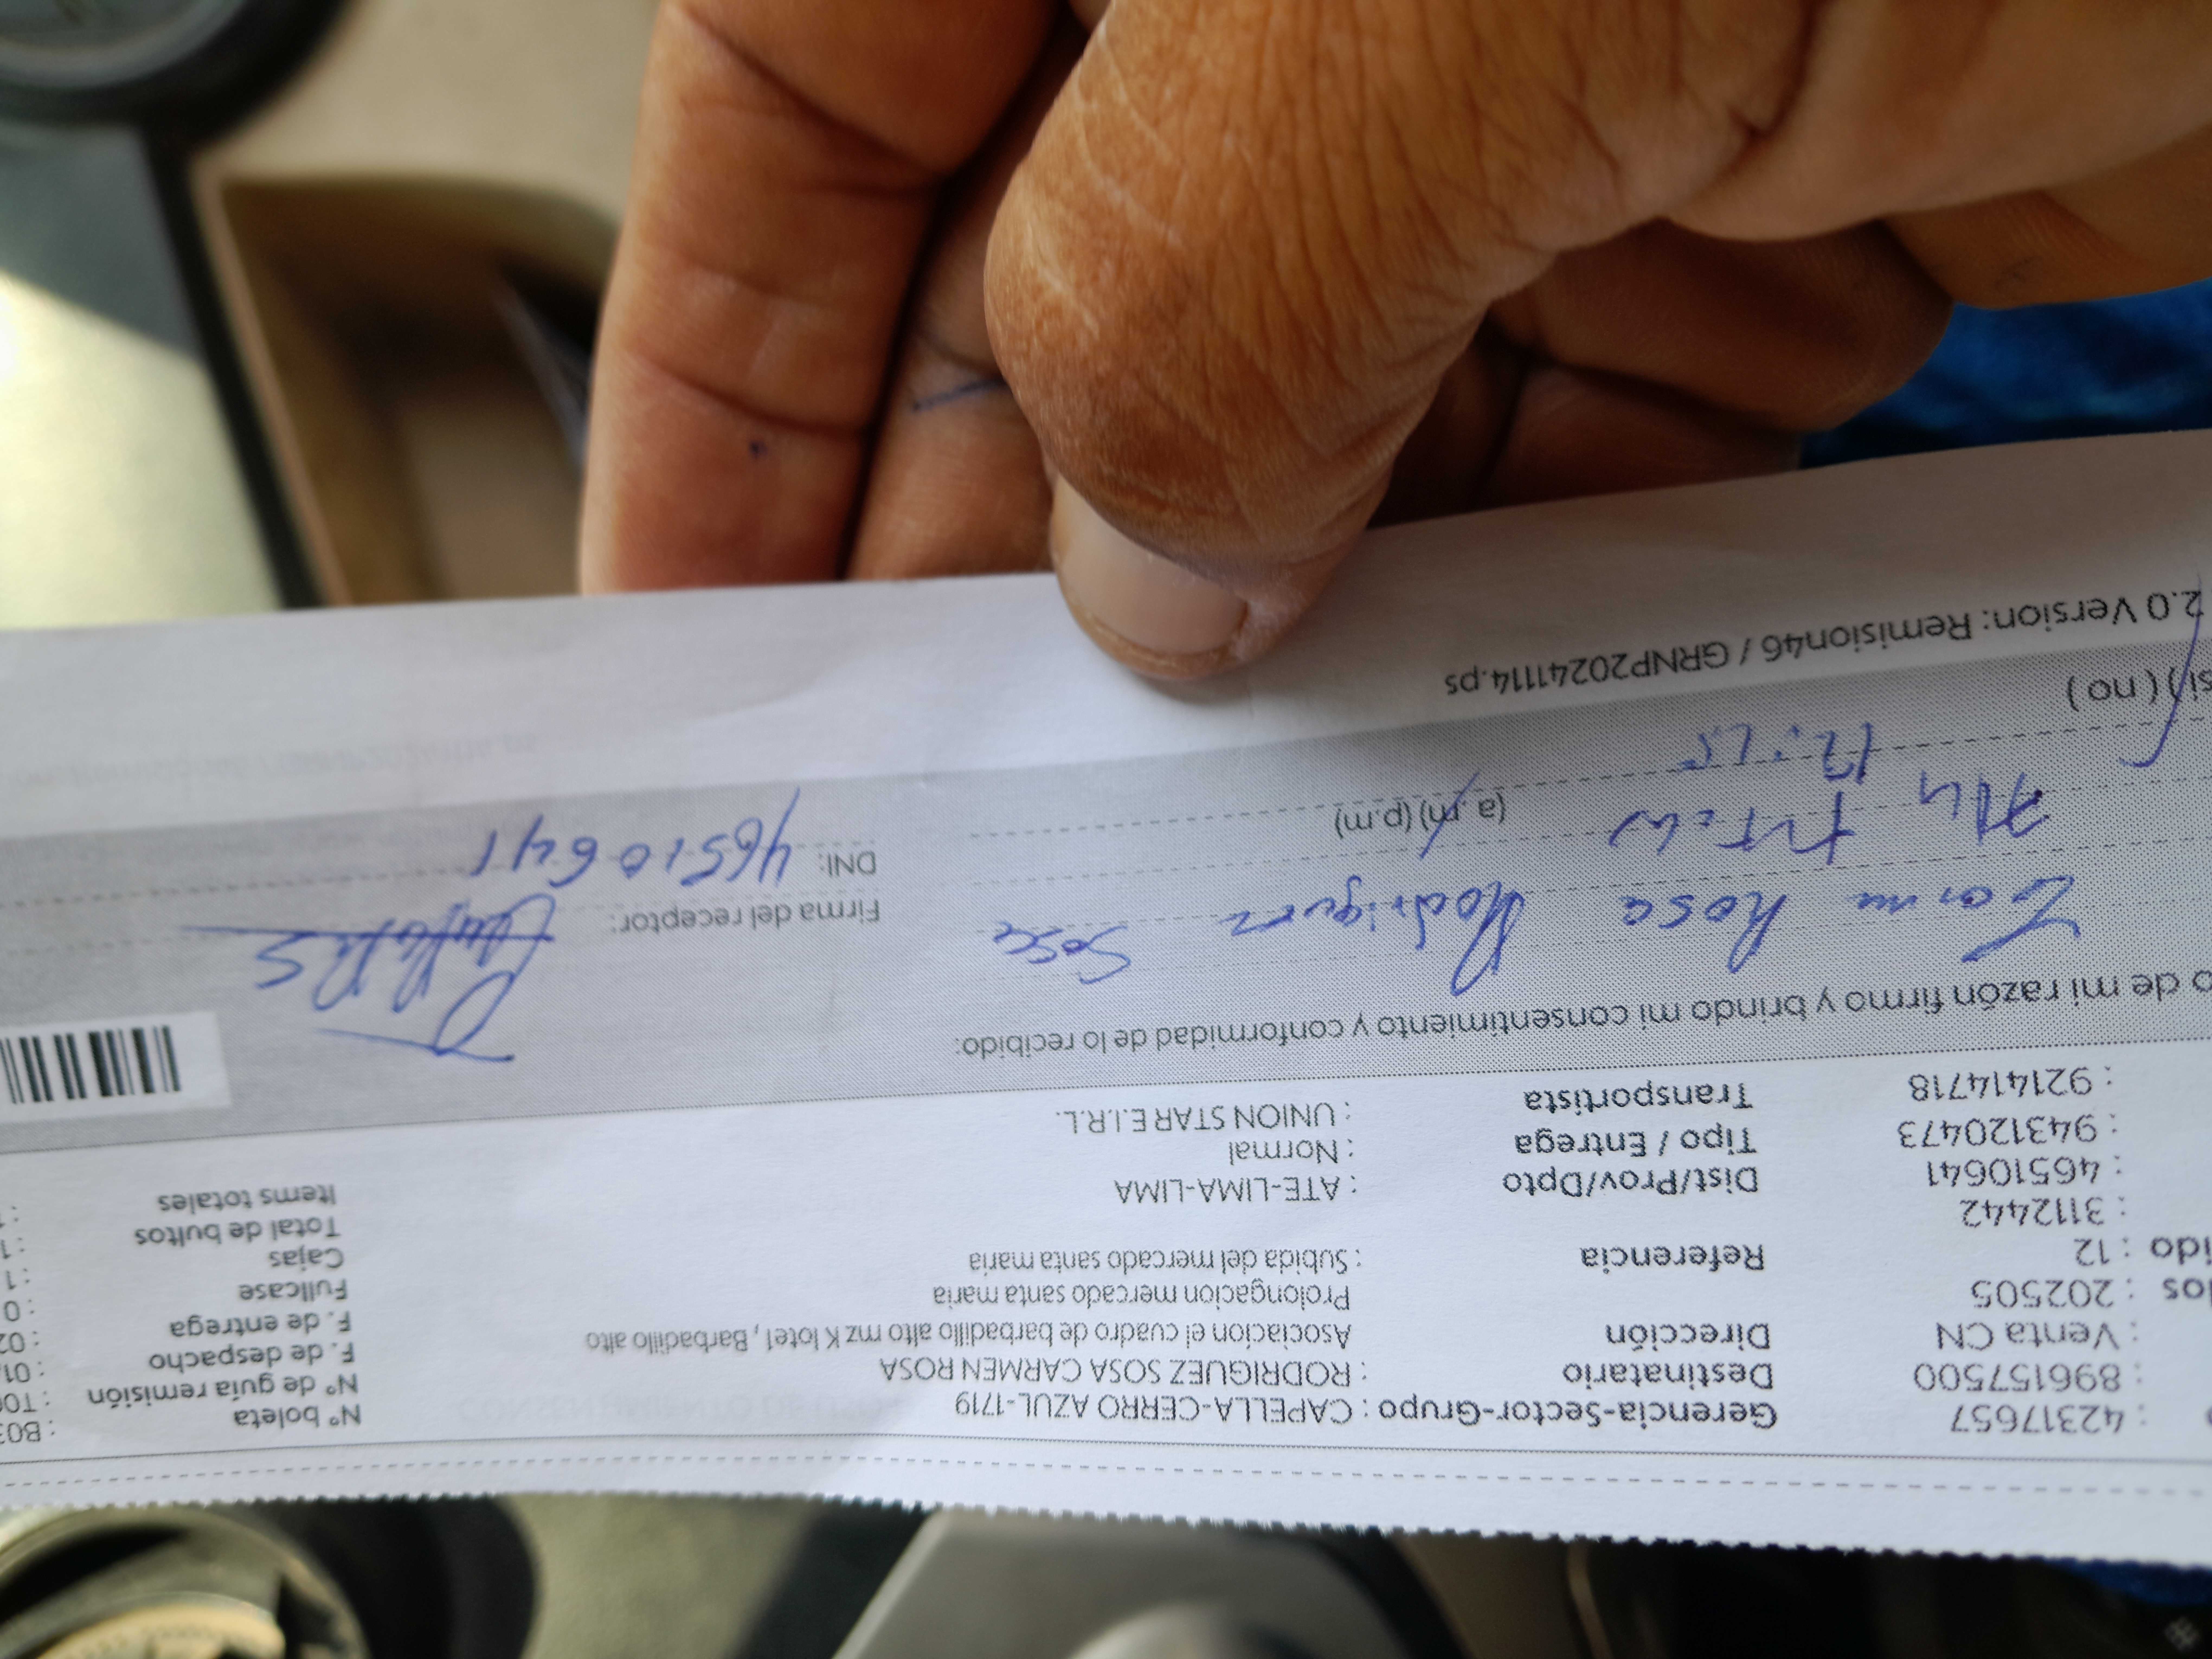 : 42317657 Gerencia-Sector-Grupo : CAPELLA-CERRO AZUL-1719 Nº boleta : B03
: 896157500 Destinatario : RODRIGUEZ SOSA CARMEN ROSA Nº de guía remisión : T00
: Venta CN Dirección Asociación el cuadro de barbadillo alto mz K lote1, Barbadillo alto F. de despacho : 01
: 202505 Prolongacion mercado santa maria F. de entrega : 02
ido : 12 Referencia : Subida del mercado santa maria Fullcase : 0
: 3112442 Cajas : 1
: 46510641 Dist/Prov/Dpto : ATE-LIMA-LIMA Total de bultos : 1
: 943120473 Tipo / Entrega : Normal Items totales :
: 921414718 Transportista : UNION STAR E.I.R.L.
o de mi razón firmo y brindo mi consentimiento y conformidad de lo recibido:
Rosa Rodriguez Sosa Firma del receptor:
(a.m) (p.m) DNI: 46510641
( no )
2.0 Version: Remision46 / GRNP20241114.ps